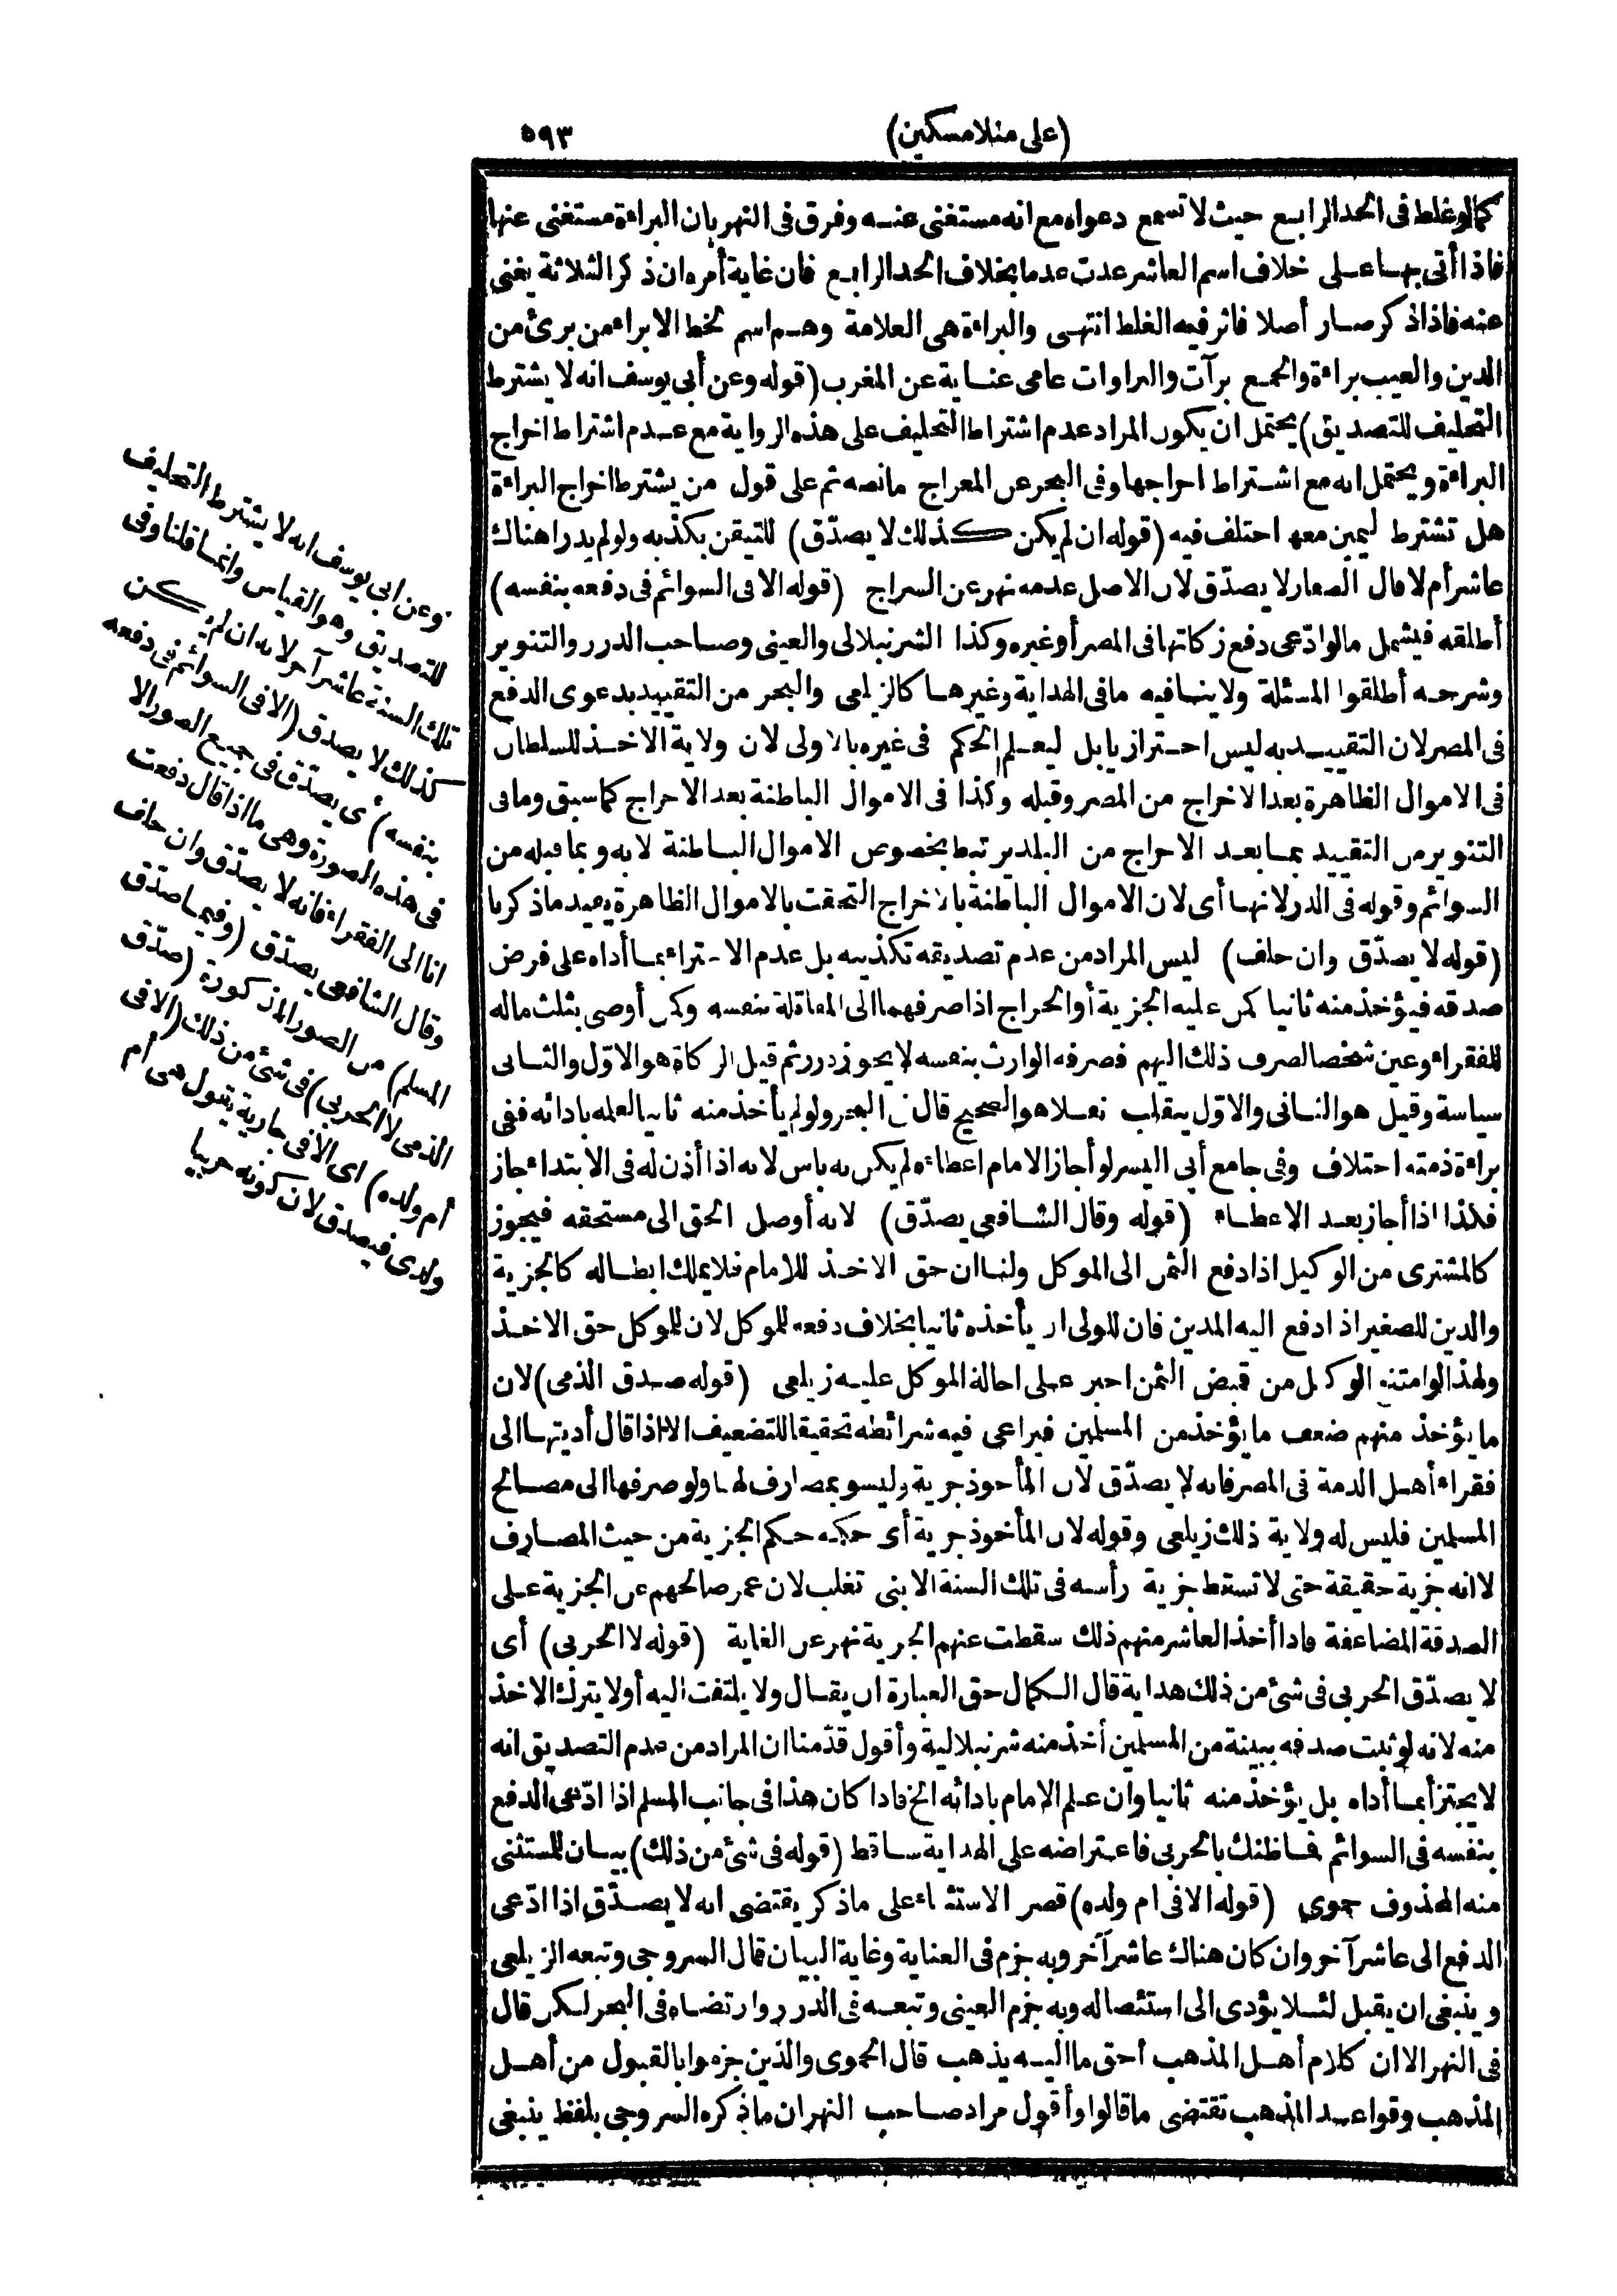 (على منلا مسكين)
٥٩٣
كمالو غلط فى الحد الرابع حيث لا تسمع دعواه مع انه مستغنى عنه وفرق فى النهر بان البراءة مستغنى عنها
فاذا أتى بها على خلاف اسم العاشر عدت عدما بخلاف الحد الرابع فان غاية أمره ان ذكر الثلاثة يغنى
عنه فاذا ذكر صار أصلا فاثر فيه الغلط انتهى والبراءة هى العلامة وهى اسم لخط الابراء من برئ من
الدين والعيب براءة والجمع برآت والبراوات عامى عناية عن المغرب (قوله وعن أبى يوسف انه لا يشترط
التحليف للتصديق) يحتمل ان يكون المراد عدم اشتراط التحليف على هذه الرواية مع عدم اشتراط اخراج
البراءة ويحتمل انه مع اشتراط اخراجها وفى البحر عن المعراج مانصه ثم على قول من يشترط اخراج البراءة
هل تشترط ليمين معها اختلف فيه (قوله ان لم يكن كذلك لا يصدّق) للتيقن بكذبه ولو لم يدر اهناك
عاشر أم لا قال الصفار لا يصدّق لان الاصل عدمه نهر عن السراج (قوله الا فى السوائم فى دفعه بنفسه)
أطلقه فيشمل مالو ادّعى دفع زكاتها فى المصر أو غيره وكذا الشرنبلالى والعينى وصاحب الدرر والتنوير
وشرحه أطلقوا المسئلة ولا ينافيه مافى الهداية وغيرها كالزيلعى والبحر من التقييد بدعوى الدفع
فى المصر لان التقييد به ليس احترازيا بل ليعلم الحكم فى غيره بالاولى لان ولاية الاخذ للسلطان
فى الاموال الظاهرة بعد الاخراج من المصر وقبله وكذا فى الاموال الباطنة بعد الاخراج كما سبق ومافى
التنوير من التقييد بما بعد الاخراج من البلد يرتبط بخصوص الاموال الباطنة لا به وبما قبله من
السوائم وقوله فى الدر لانها أى لان الاموال الباطنة بالاخراج التحقت بالاموال الظاهرة يفيد ماذكرنا
(قوله لا يصدّق وان حلف) ليس المراد من عدم تصديقه تكذيبه بل عدم الاجتزاء بما أداه على فرض
صدقه فيؤخذ منه ثانيا كمن عليه الجزية أو الخراج اذا صرفهما الى المقاتلة بنفسه وكمن أوصى بثلث ماله
للفقراء وعين شخصا لصرف ذلك اليهم فصرفه الوارث بنفسه لا يجوز درر ثم قيل الزكاة هو الاوّل والثانى
سياسة وقيل هو الثانى والاوّل ينقلب نفلا هو الصحيح قال فى البحر ولو لم يأخذ منه ثانيا لعلمه بادائه ففى
براءة ذمته اختلاف وفى جامع أبى اليسر لو أجاز الامام اعطاءه لم يكن به باس لانه اذا أذن له فى الابتداء جاز
فكذا اذا أجاز بعد الاعطاء (قوله وقال الشافعى يصدّق) لانه أوصل الحق الى مستحقه فيجوز
كالمشترى من الوكيل اذا دفع الثمن الى الموكل ولنا ان حق الاخذ للامام فلا يملك ابطاله كالجزية
والدين للصغير اذا دفع اليه المدين فان للولى ان يأخذه ثانيا بخلاف دفعه للموكل لان للموكل حق الاخذ
ولهذا لو امتنع الوكيل من قبض الثمن اجبر على احالة الموكل عليه زيلعى (قوله صدق الذمى) لان
ما يؤخذ منهم ضعف ما يؤخذ من المسلمين فيراعى فيه شرائطه تحقيقا للتضعيف الا اذا قال أديتها الى
فقراء أهل الذمة فى المصر فانه لا يصدّق لان المأخوذ جزية وليسو بمصارف لها ولو صرفها الى مصالح
المسلمين فليس له ولاية ذلك زيلعى وقوله لان المأخوذ جزية أى حكمه حكم الجزية من حيث المصارف
لا انه جزية حقيقة حتى لا تسقط جزية رأسه فى تلك السنة الا بنى تغلب لان عمر صالحهم عن الجزية على
الصدقة المضاعفة فاذا أخذ العاشر منهم ذلك سقطت عنهم الجزية نهر عن الغاية (قوله لا الحربى) أى
لا يصدّق الحربى فى شئ من ذلك هداية قال الكمال حق العبارة ان يقال ولا يلتفت اليه أو لا يترك الاخذ
منه لانه لو ثبت صدقه ببينة من المسلمين أخذ منه شرنبلالية وأقول قدّمنا ان المراد من عدم التصديق انه
لا يجتزأ بما أداه بل يؤخذ منه ثانيا وان علم الامام بادائه الخ فاذا كان هذا فى جانب المسلم اذا ادّعى الدفع
بنفسه فى السوائم فما ظنك بالحربى فاعتراضه على الهداية ساقط (قوله فى شئ من ذلك) بيان للمستثنى
منه المحذوف حموى (قوله الا فى ام ولده) قصر الاستثناء على ماذكر يقتضى انه لا يصدّق اذا ادّعى
الدفع الى عاشر آخر وان كان هناك عاشر آخر وبه جزم فى العناية وغاية البيان قال السروجى وتبعه الزيلعى
وينبغى ان يقبل لئلا يؤدى الى استئصاله وبه جزم العينى وتبعه فى الدرر وارتضاه فى البحر لكن قال
فى النهر الا ان كلام أهل المذهب أحق ما اليه يذهب قال الحموى والذين جزموا بالقبول من أهل
المذهب وقواعد المذهب تقتضى ما قالوا وأقول مراد صاحب النهر ان ماذكره السروجى بلفظ ينبغى
وعن ابى يوسف انه لا يشترط التحليف
للتصديق وهو القياس وانما قلنا وفى
تلك السنة عاشر آخر لانه ان لم يكن
كذلك لا يصدق (الا فى السوائم فى دفعه
بنفسه) أى يصدّق فى جميع الصور الا
فى هذه الصورة وهى ما اذا قال دفعت
انا الى الفقراء فانه لا يصدّق وان حلف
وقال الشافعى يصدّق (وفيما صدّق
المسلم) من الصور المذكورة (صدّق
الذمى لا الحربى) فى شئ من ذلك (الا فى
أم ولده) اى الا فى جارية يقول هى أم
ولدى فيصدق لان كونه حربيا